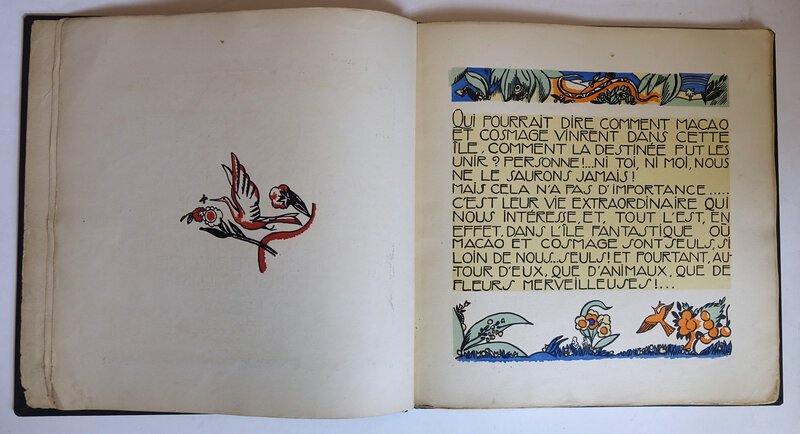 QUI POURRAIT DIRE COMMENT MACAO
ET COSMAGE VINRENT DANS CETTE
ÎLE, COMMENT LA DESTINÉE PUT LES
UNIR ? PERSONNE !... NI TOI, NI MOI, NOUS
NE LE SAURONS JAMAIS !
MAIS CELA N'A PAS D'IMPORTANCE .....
C'EST LEUR VIE EXTRAORDINAIRE QUI
NOUS INTÉRESSE, ET, TOUT L'EST, EN
EFFET, DANS L'ÎLE FANTASTIQUE OÙ
MACAO ET COSMAGE SONT SEULS, SI
LOIN DE NOUS... SEULS ! ET POURTANT, AU-
TOUR D'EUX, QUE D'ANIMAUX, QUE DE
FLEURS MERVEILLEUSES !...